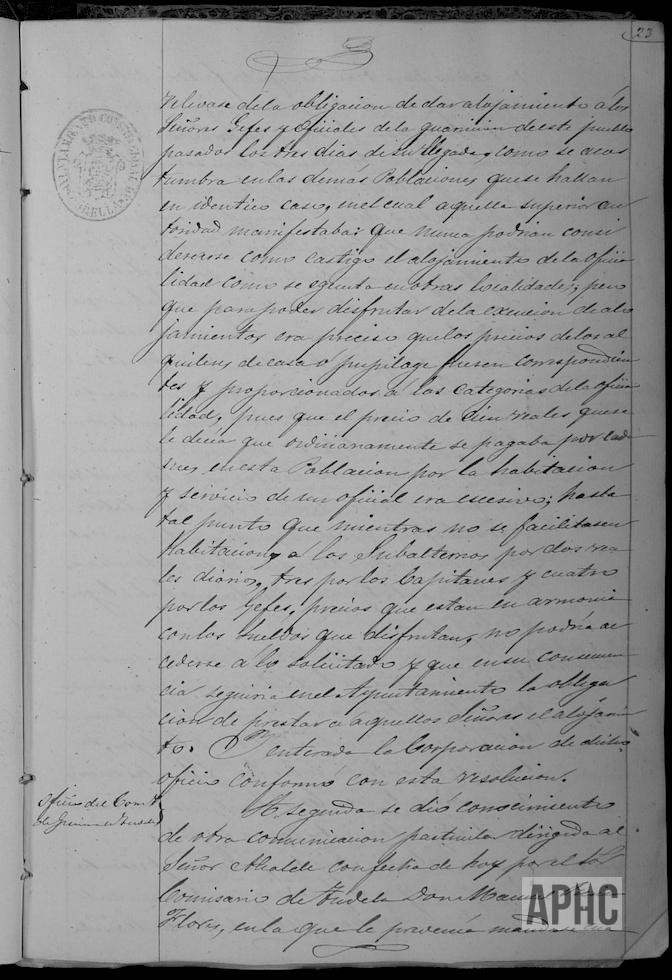 23
AYUNTAMIENTO CONSTITUCIONAL DE
relevase de la obligasion de dar alojamiento á los
Señores Gefes y Oficiales de la guarnicion de este pueblo
pasados los tres dias de su llegada, como se acos
tumbra en las demás Poblaciones que se hallan
en identico caso, en el cual aquella superior au
toridad manifestaba: que nunca podrian consi
derarse como castigo el alojamiento de la oficia
lidad como se egecuta en otras localidades; pero
que para poder disfrutar de la exencion de alo
jamientos era preciso que los precios de los al
quileres de casa o pupilage fuesen correspondien
tes y proporcionados á las categorias de la oficia
lidad, pues que el precio de cien reales que se
le decia que ordinariamente se pagaba por cada
mes, en esta Poblacion por la habitacion
y servicio de un oficial era escesivo; hasta
tal punto que mientras no se facilitasen
habitaciones a los Subalternos por dos rea
les diarios, tres por los Capitanes y cuatro
por los Gefes, precios que estan en armonia
con los sueldos que disfrutan, no podria ac
cederse á lo solicitado y que en su consecuen
cia seguiria en el Ayuntamiento la obliga
cion de prestar a aquellos Señores el alojamien
to. Y enterada la Corporacion de dicho
oficio conformó con esta resolucion.
Oficio del Comº
de Guerra de Tudela
A segunda se dió conocimiento
de otra comunicacion particular dirigida al
Señor Alcalde con fecha de hoy por el Sor
Comisario de Tudela Don Manuel
Flores, en la que le prevenia mandase una
APHC